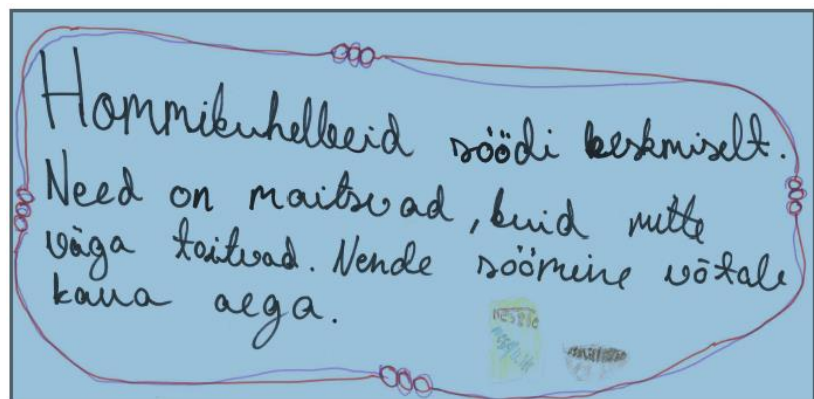 Hommikuhelbeid söödi keskmiselt.
Need on maitsvad, kuid mitte
väga toitvad. Nende söömine võtab
kaua aega.
nestle
nesquik